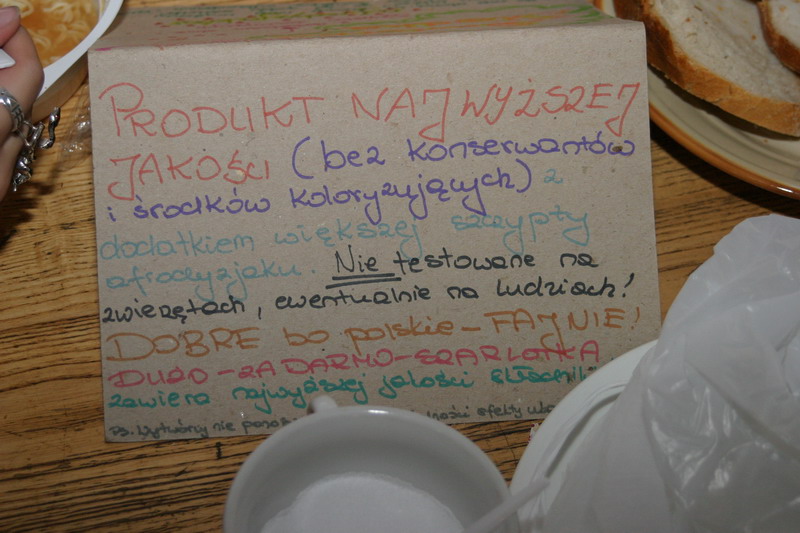 PRODUKT NAJWYŻSZEJ
JAKOŚCI (bez konserwantów
i środków koloryzujących) z
dodatkiem większej szczypty
afrodyzjaku. Nie testowane na
zwierzętach, ewentualnie na ludziach!
DOBRE bo polskie - FAJNIE!
DUŻO - ZA DARMO - SZARLOTKA
zawiera najwyższej jakości
Ps. Wytwórcy nie efekty